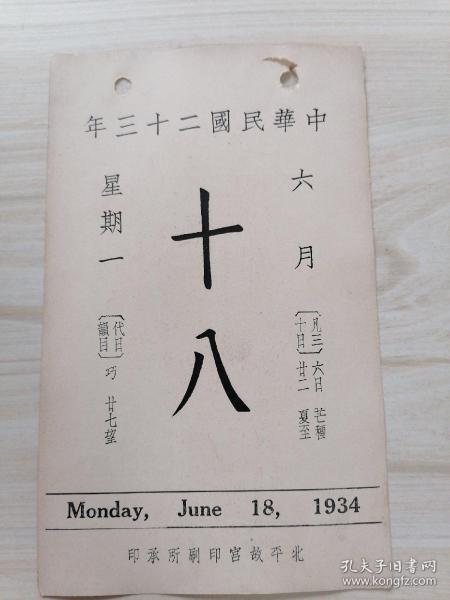 中華民國二十三年
六月
十八
星期一
〔凡三十日〕六日 芒種
廿二 夏至
〔代日韻目〕巧 廿七望
Monday, June 18, 1934
北平故宮印刷所承印
孔夫子旧书网
www.kongfz.com